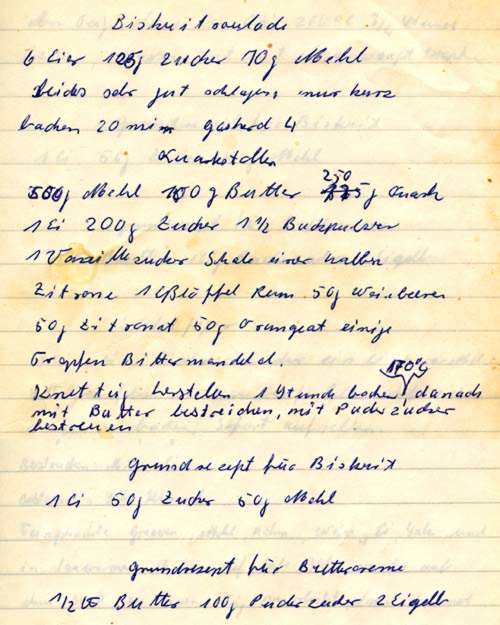 Biskuitroulade
6 Eier 125g Zucker 70g Mehl
beides sehr gut schlagen, nur kurz
backen 20 min Gasherd 4
Quarkstollen
500g Mehl 100g Butter 250g Quark
1 Ei 200g Zucker 1 1/2 Backpulver
1 Vanillezucker Schale einer halben
Zitrone 1 Eßlöffel Rum 50g Weinbeeren
50g Zitronat 50g Orangeat einige
Tropfen Bittermandel.
Knetteig herstellen 1 Stunde backen 170°C danach
mit Butter bestreichen, mit Puderzucker
bestreuen
Grundrezept für Biskuit
1 Ei 50g Zucker 50g Mehl
Grundrezept für Buttercreme
1/2 Butter 100g Puderzucker 2 Eigelb